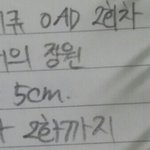 OAD 2회차
의 정원
5cm.
2화까지